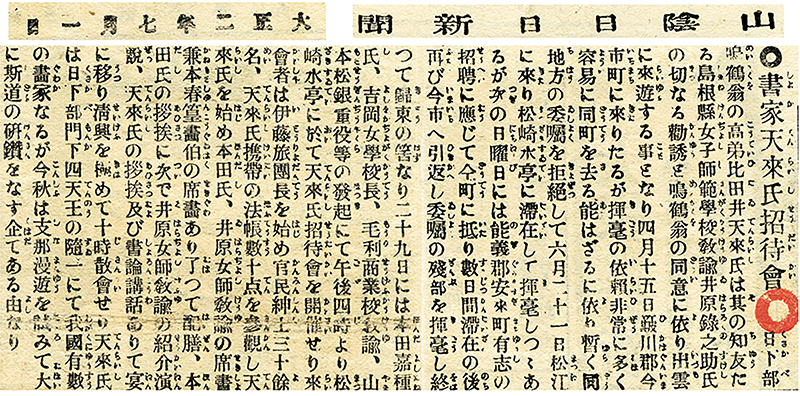 山陰日日新聞
大正二年七月一日
◎書家天來氏招待會 日下部
鳴鶴翁の高弟比田井天來氏は其の知友た
る島根縣女子師範學校敎諭井原錄之助氏
の切なる勸誘と鳴鶴翁の同意に依り出雲
に來遊する事となり四月十五日簸川郡今
市町に來りたるが揮毫の依賴非常に多く
容易に同町を去る能はざるに依り暫く同
地方の委嘱を拒絕して六月二十一日松江
に來り松崎水亭に滯在して揮毫しつゝあ
るが次の日曜日には能義郡安來町有志の
招聘に應じて仝町に抵り數日間滯在の後
再び今市へ引返し委嘱の殘部を揮毫し終
つて歸東の筈なり二十九日には本田嘉種
氏、吉岡女學校長、毛利商業校敎諭、山
本松銀重役等の發起にて午後四時より松
崎水亭に於て天來氏招待會を開催せり來
會者は伊藤旅團長を始め官民紳士三十餘
名、天來氏携帶の法帳數十点を參觀し天
來氏を始め本田氏、井原女師敎諭の席書
兼本春皇畵伯の席畵あり了つて配膳、本
田氏の挨拶に次で井原女師敎諭の紹介演
說、天來氏の挨拶及び書論講話ありて宴
に移り淸興を極めて十時散會せり天來氏
は日下部門下四天王の隨一にて我國有數
の書家なるが今秋は支那漫遊を試みて大
に斯道の硏鑽をなす企てある由なり